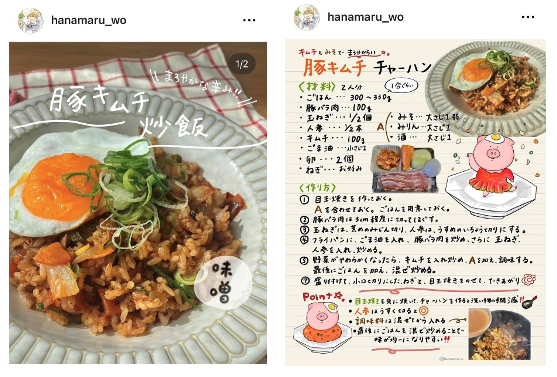 hanamaru_wo
1/2
まろやかな辛み!!
豚キムチ
炒飯
味噌
hanamaru_wo
キムチとみそで まろやからい
豚キムチ チャーハン
〈材料〉2人分
・ごはん … 300~350g
・豚バラ肉 … 100g
・玉ねぎ … 1/2個
・人参 … 1/2本
・キムチ … 100g
・ごま油 … 小さじ2
・卵 … 2個
・ねぎ … お好み
A
・みりん … 大さじ1
・酒 … 大さじ1
〈作り方〉
① 目玉焼きを作っておく。
Aを合わせておく。ごはんを用意しておく。
② 豚バラ肉は3cm程度に切っておく。
③ 玉ねぎは、荒めのみじん切り、人参は、うすめのいちょう切りにする。
④ フライパンに、ごま油を入れ、豚バラ肉を炒め、さらに玉ねぎ、
人参を入れ、炒める。
⑤ 野菜がやわらかくなったら、キムチを入れ炒め、Aを加え、調味する。
最後にごはんを加え、混ぜ炒める。
⑦ 盛り付けて、小口切りにしたねぎと、目玉焼きをのせて、できあがり
Point
・人参はうすく切ると◎
・調味料は混ぜてから入れる
・最後にごはんを混ぜ炒めることで
味が均一になりやすい!!